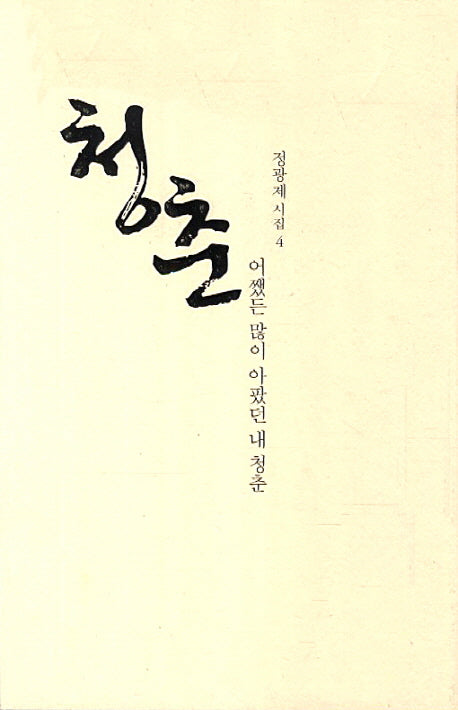 청춘
정광제 시집 4
어쨌든 많이 아팠던 내 청춘